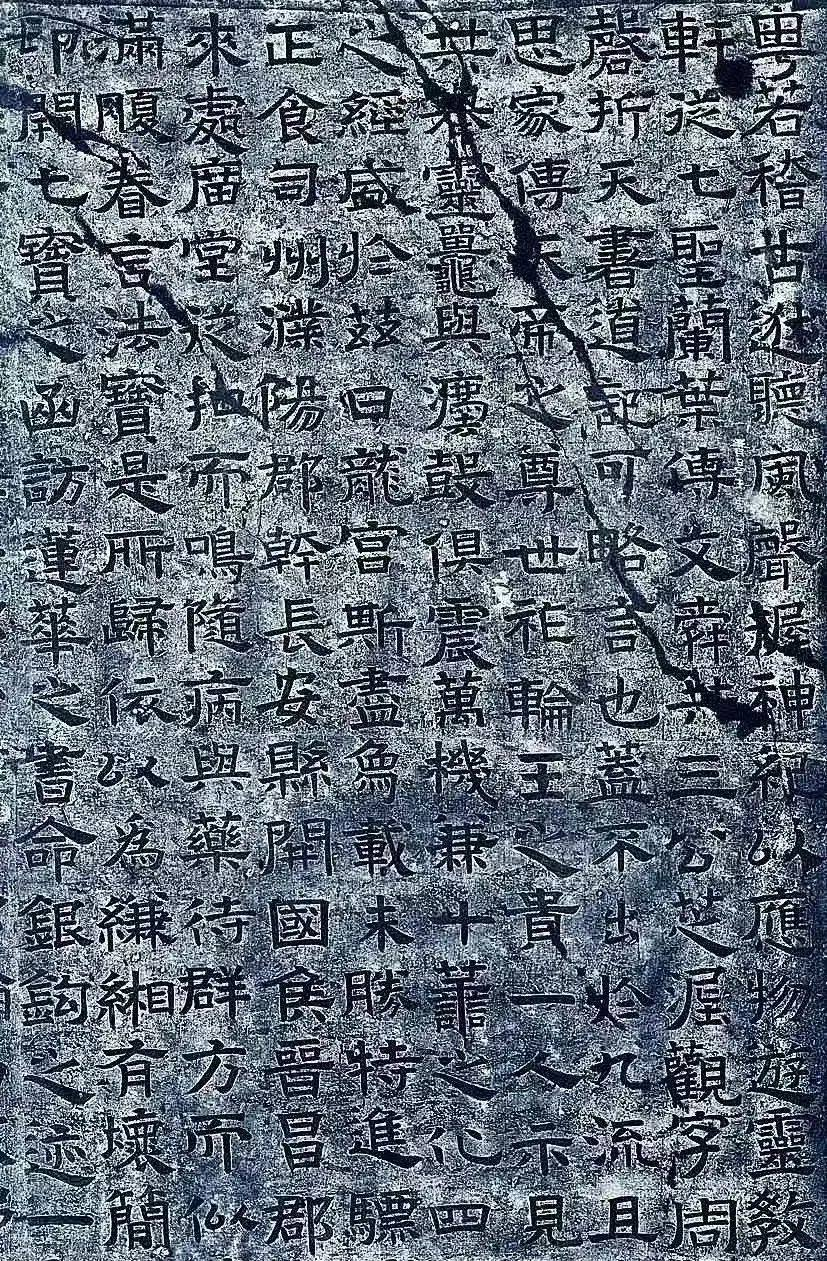 粵若稽古逖聽風聲握神紀以應物遊靈教
軒從七聖蘭葉傳文舜共三公芝泥觀字周
磬折天書道記可略言也蓋不出於九流且
思家傳天帝之尊世祚輪王之貴一人示見
共靈鼉與鼓俱震萬機兼十善之化四
之經盛於茲日龍宮斯盡象載未勝特進驃
正食司州濮陽郡幹長安縣開國侯晉昌郡
來處廣堂從扣而鳴隨病與藥待群方而似
滿腹眷言法寶是所歸依以為縑緗有壞簡
印開七寶之函訪蓮華之書命銀鉤之迹一